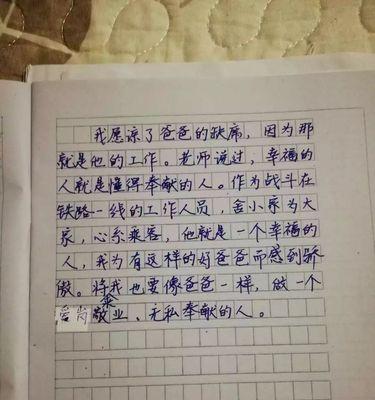 我愿谅了爸爸的缺席，因为那
就是他的工作。老师说过，幸福的
人就是懂得奉献的人。作为战斗在
铁路一线的工作人员，舍小家为大
家，心系乘客，他就是一个幸福的
人，我为有这样的好爸爸而感到骄
傲。将来我也要像爸爸一样，做一个
爱岗敬业、无私奉献的人。